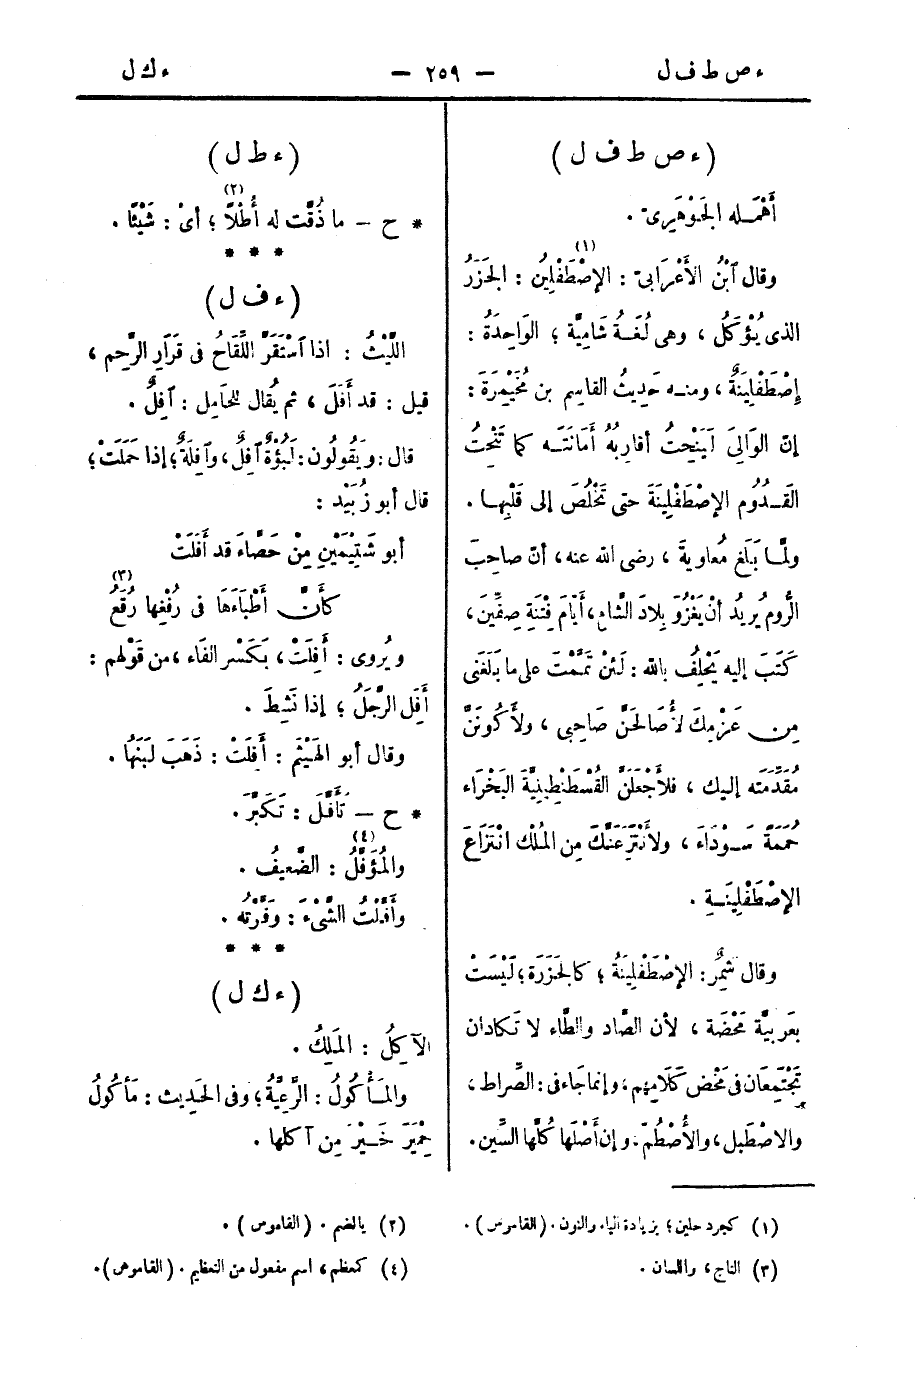 ء ص ط ف ل — ٢٥٩ — ء ك ل
( ء ص ط ف ل )
أَهْمَـله الجَـوْهَرِىّ .
وقال ٱبْنُ الأَعْرَابىّ : الإصْطَفْلِينُ (١) : الجَزَرُ
الذى يُؤْكَلُ ، وهى لُغَـةٌ شَامِيَّة ؛ الوَاحِدَةُ :
إصْطَفْلِينَةٌ ، ومنـه حَدِيثُ القاسِم بن مُخَيْمِرَةَ :
إنّ الوَالِىَ لَيَنْحِتُ أقارِبُهُ أمَانَتَـه كما تَنْحِتُ
القَـدُوُم الإصْطَفْلِينَةَ حتى تَخْلُصَ إلى قَلْبِهـا .
ولمَّـا بَلَغ مُعاوِيةَ ، رضى الله عنه ، أنّ صاحِبَ
الرُّوم يُرِيدُ أنْ يَغْزُوَ بِلادَ الشَّامِ ، أيّامَ فِتْنَةِ صِفِّينَ ،
كَتَبَ إليه يَحْلِفُ بالله : لَئِنْ تَمَّمْتَ على ما بَلَغَنى
مِن عَزْمِكَ لأُصَالحَنَّ صَاحِبى ، ولأكُونَنَّ
مُقَدِّمَتَه إليك ، فلأَجْعَلَنَّ القُسْطَنْطِينِيَّةَ البَخْراء
حُمَمَةً سَـوْدَاءَ ، ولأَنْتَزِعَنَّكَ مِن المُلْك انْتَزَاعَ
الإصْطَفْلِينَـةِ .
وقال شَمِرٌ : الإصْطَفْلِينَةُ ؛ كالجَزَرَة ؛ لَيْسَتْ
بعَرَبيَّة مَحْضَة ، لأن الصَّاد والطَّاء لا تَكادان
تَجْتَمِعَان فى مَحْض كَلامِهم ، وإنما جَاء فى : الصِّراط ،
والاصْطَبل ، والأُصْطُمّ . وإن أَصْلَها كُلَّها السِّين .
( ء ط ل )
* ح – ما ذُقْت له أُطْلًا (٢) ؛ أىْ : شَيْئًا .
* * *
( ء ف ل )
اللَّيْثُ : اذا ٱسْتَقَرَّ اللَّقَاحُ فى قَرَارِ الرَّحِم ،
قيل : قد أَفَلَ ، ثم يُقال للحَامِل : آفِلٌ .
قال : ويَقُولُون : لَبُؤَةٌ آفِلٌ ، وآفِلَةٌ ؛ إذا حَمَلَتْ ؛
قال أبو زُبَيْد :
أبو شَتِيْمَيْنِ مِنْ حَصَّاءَ قد أَفَلَتْ
كأنَّ أَطْبَاءَهَا فى رُفْغِها رُقَعُ (٣)
ويُروى : أَفِلَتْ ، بكَسْر الفَاء ، من قَوْلهم :
أَفِل الرَّجُلُ ؛ إذا نَشِطَ .
وقال أبو الهَيْثَم : أَفِلَتْ : ذَهَبَ لَبَنُهَا .
* ح – تَأَفَّلَ : تَكَبَّرَ .
والمُؤَفَّلُ (٤) : الضَّعِيفُ .
وأَفَّلْتُ الشَّىْءَ : وَفَّرْتُه .
* * *
( ء ك ل )
الآكِلُ : المَلِكُ .
والمَـأْكُولُ : الرَّعِيَّةُ ؛ وفى الحَدِيث : مَأكُولُ
حِمْيَرَ خَـيْرٌ مِن آكلها .
(١) كجرد حلين ؛ بزيادة الياء والنون . (القاموس) .
(٢) بالضم . (القاموس) .
(٣) التاج ، واللسان .
(٤) كمعظم ، اسم مفعول من التعظيم . (القاموس) .